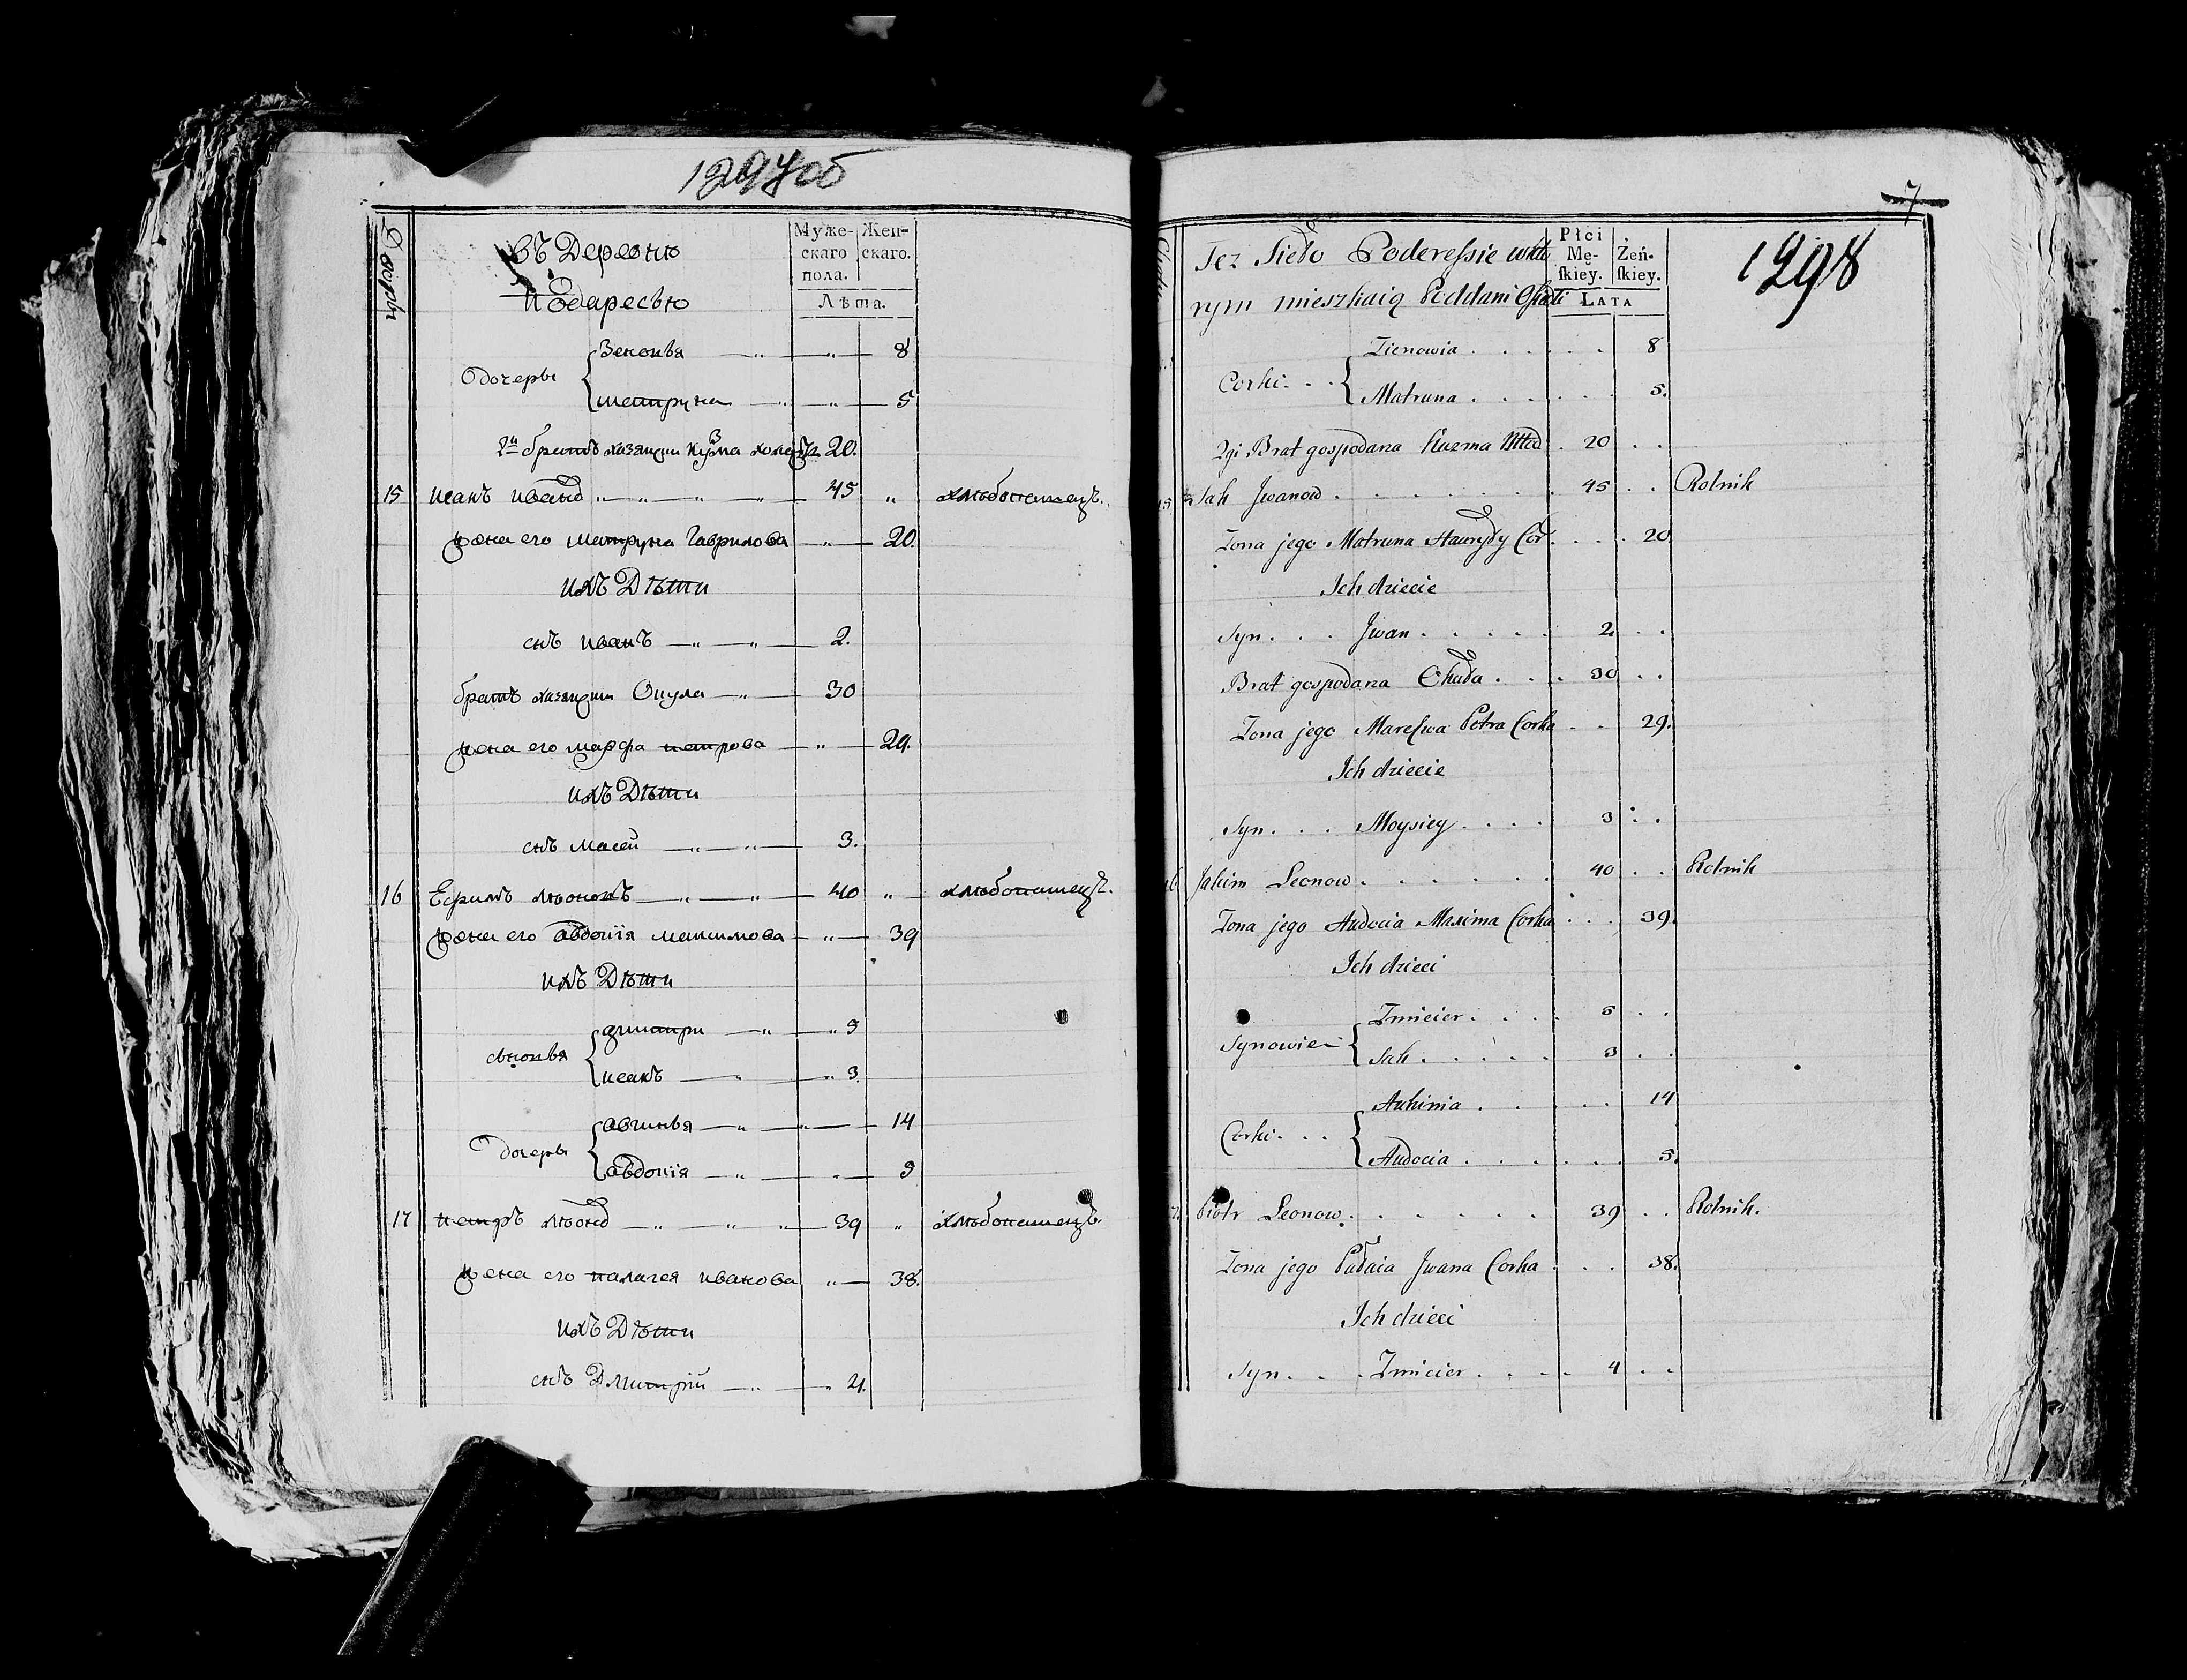 1297 об
Дворы
въ Деревню
Подаресью
Муже-
скаго
пола.
Жен-
скаго.
Лѣта.
дочеры
Зеновья 8
матруна 5
2й братъ хазяина кузма 20.
15 исакъ иванов 45 „ хлѣбопашецъ.
жена его матруна Гаврилова „ 20.
ихъ Дѣти
снъ иванъ 2.
братъ хазяина Окула 30
жена его марфа петрова „ 29.
ихъ Дѣти
снъ масей 3.
16 Ефимъ лѣоновъ 40 „ хлѣбопашецъ.
жена его авдотія максимова „ 39
ихъ Дѣти
сыновья
дмитри 5
исакъ 3.
Дочеры
авгинья 14
авдотія 5
17 петръ лѣонов 39 „ хлѣбопашецъ.
жена его палагея иванова „ 38.
ихъ Дѣти
снъ Дмитрій 4.
7
1298
Też Sieło Poderessie w któ
rym mieszkaią Poddani
Płci
Mę-
skiey.
Żeń-
skiey.
LATA
Corki
Zienowia 8
Matruna 5.
2gi Brat gospodarza Kuzma 20
15 Isak Jwanow 45 Rolnik
Zona jego Matruna Hawryły Cor 20
Ich dziecie
Syn Jwan 2
Brat gospodarza 30
Zona jego Petra Corka 29.
Ich dziecie
Syn Moysiey 3
Jakim Leonow 40 Rolnik
Zona jego Audocia Maxima Corka 39.
Ich dzieci
Synowie
Zmicier 5
Isak 3
Corki
Auhinia 14
Audocia 5.
Piotr Leonow 39 Rolnik.
Zona jego Pałaia Jwana Corka 38.
Ich dzieci
Syn Zmicier 4